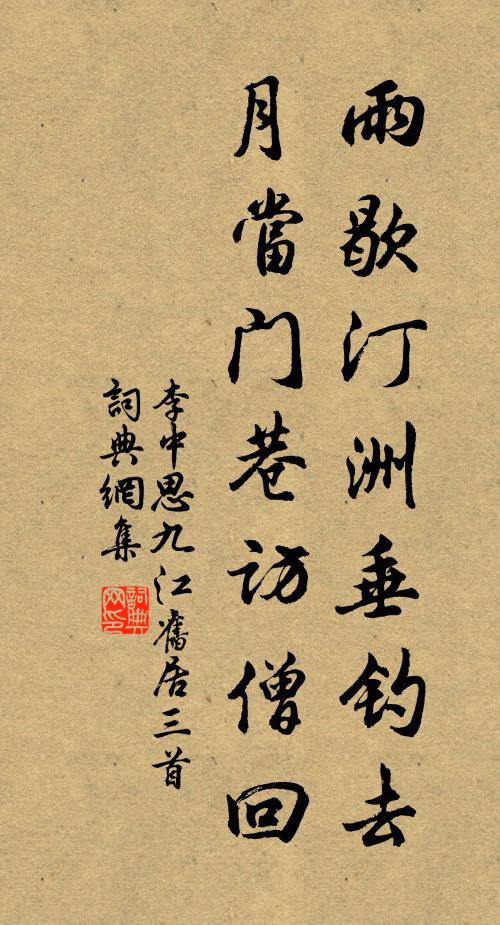 雨歇汀洲垂钓去
月當门巷访僧回
李中思九江舊居三首
詞典網集
詞典网印